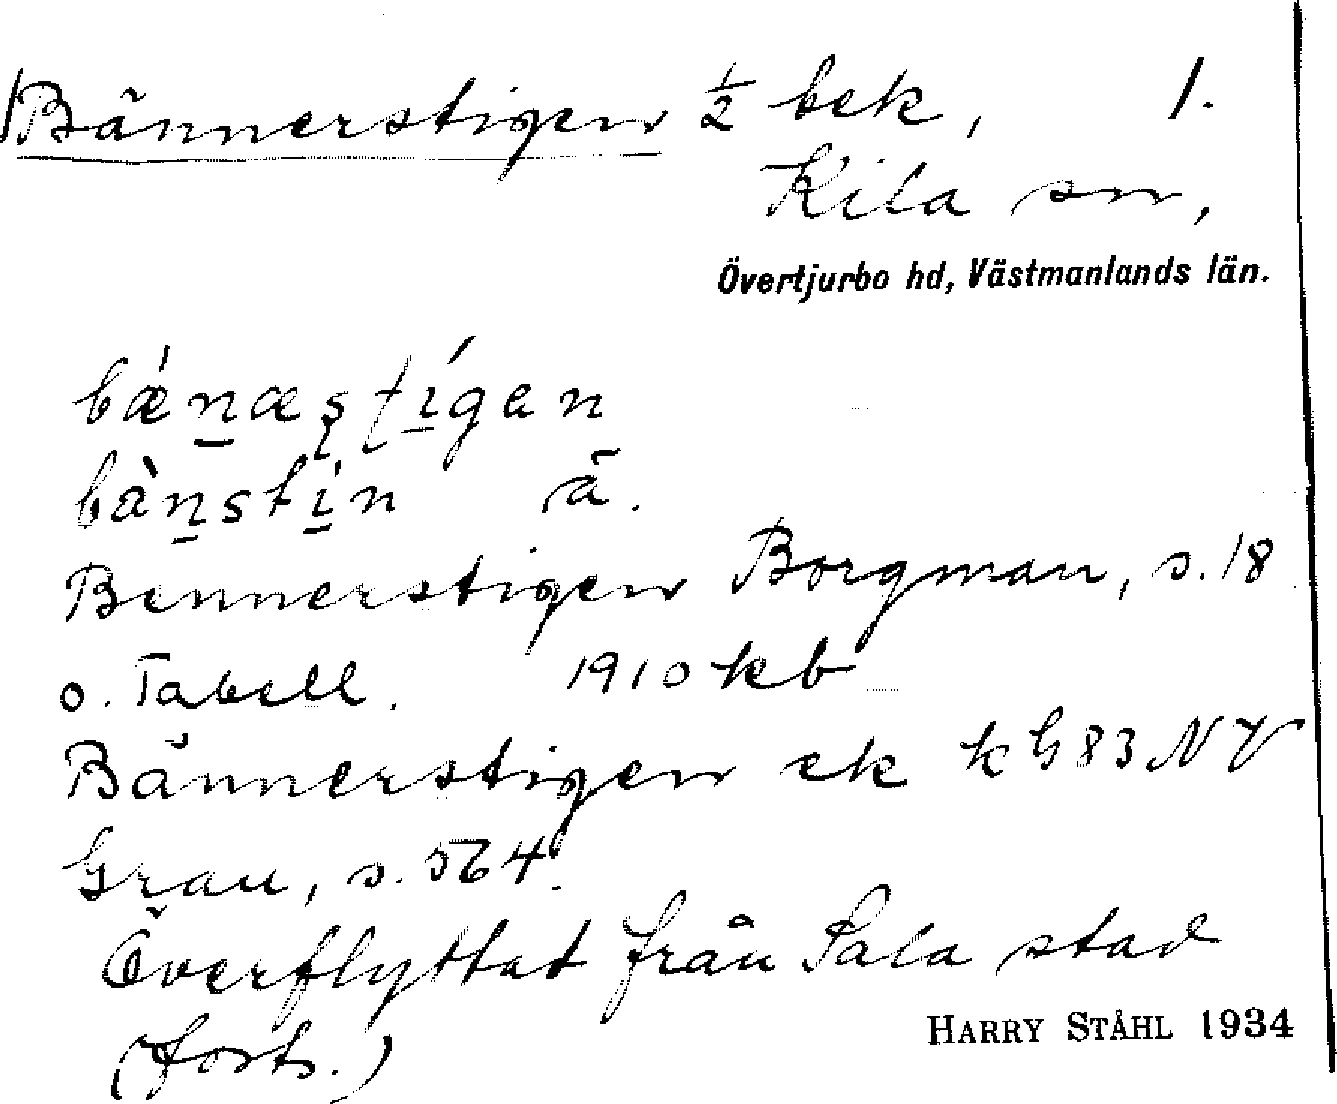 Bännerstigen ½ bek, 1.
Kila sn,
Övertjurbo hd, Västmanlands län.
bǽn̲æʂʈí̲gen
bàn̲sti̲̇n ä.
Bennerstigen Borgman, s. 18
o. Tabell. 1910 kb
Bännerstigen ek k G 83 NV
Grau, s. 564.
Överflyttat från Sala stad
(forts.)
HARRY STÅHL 1934